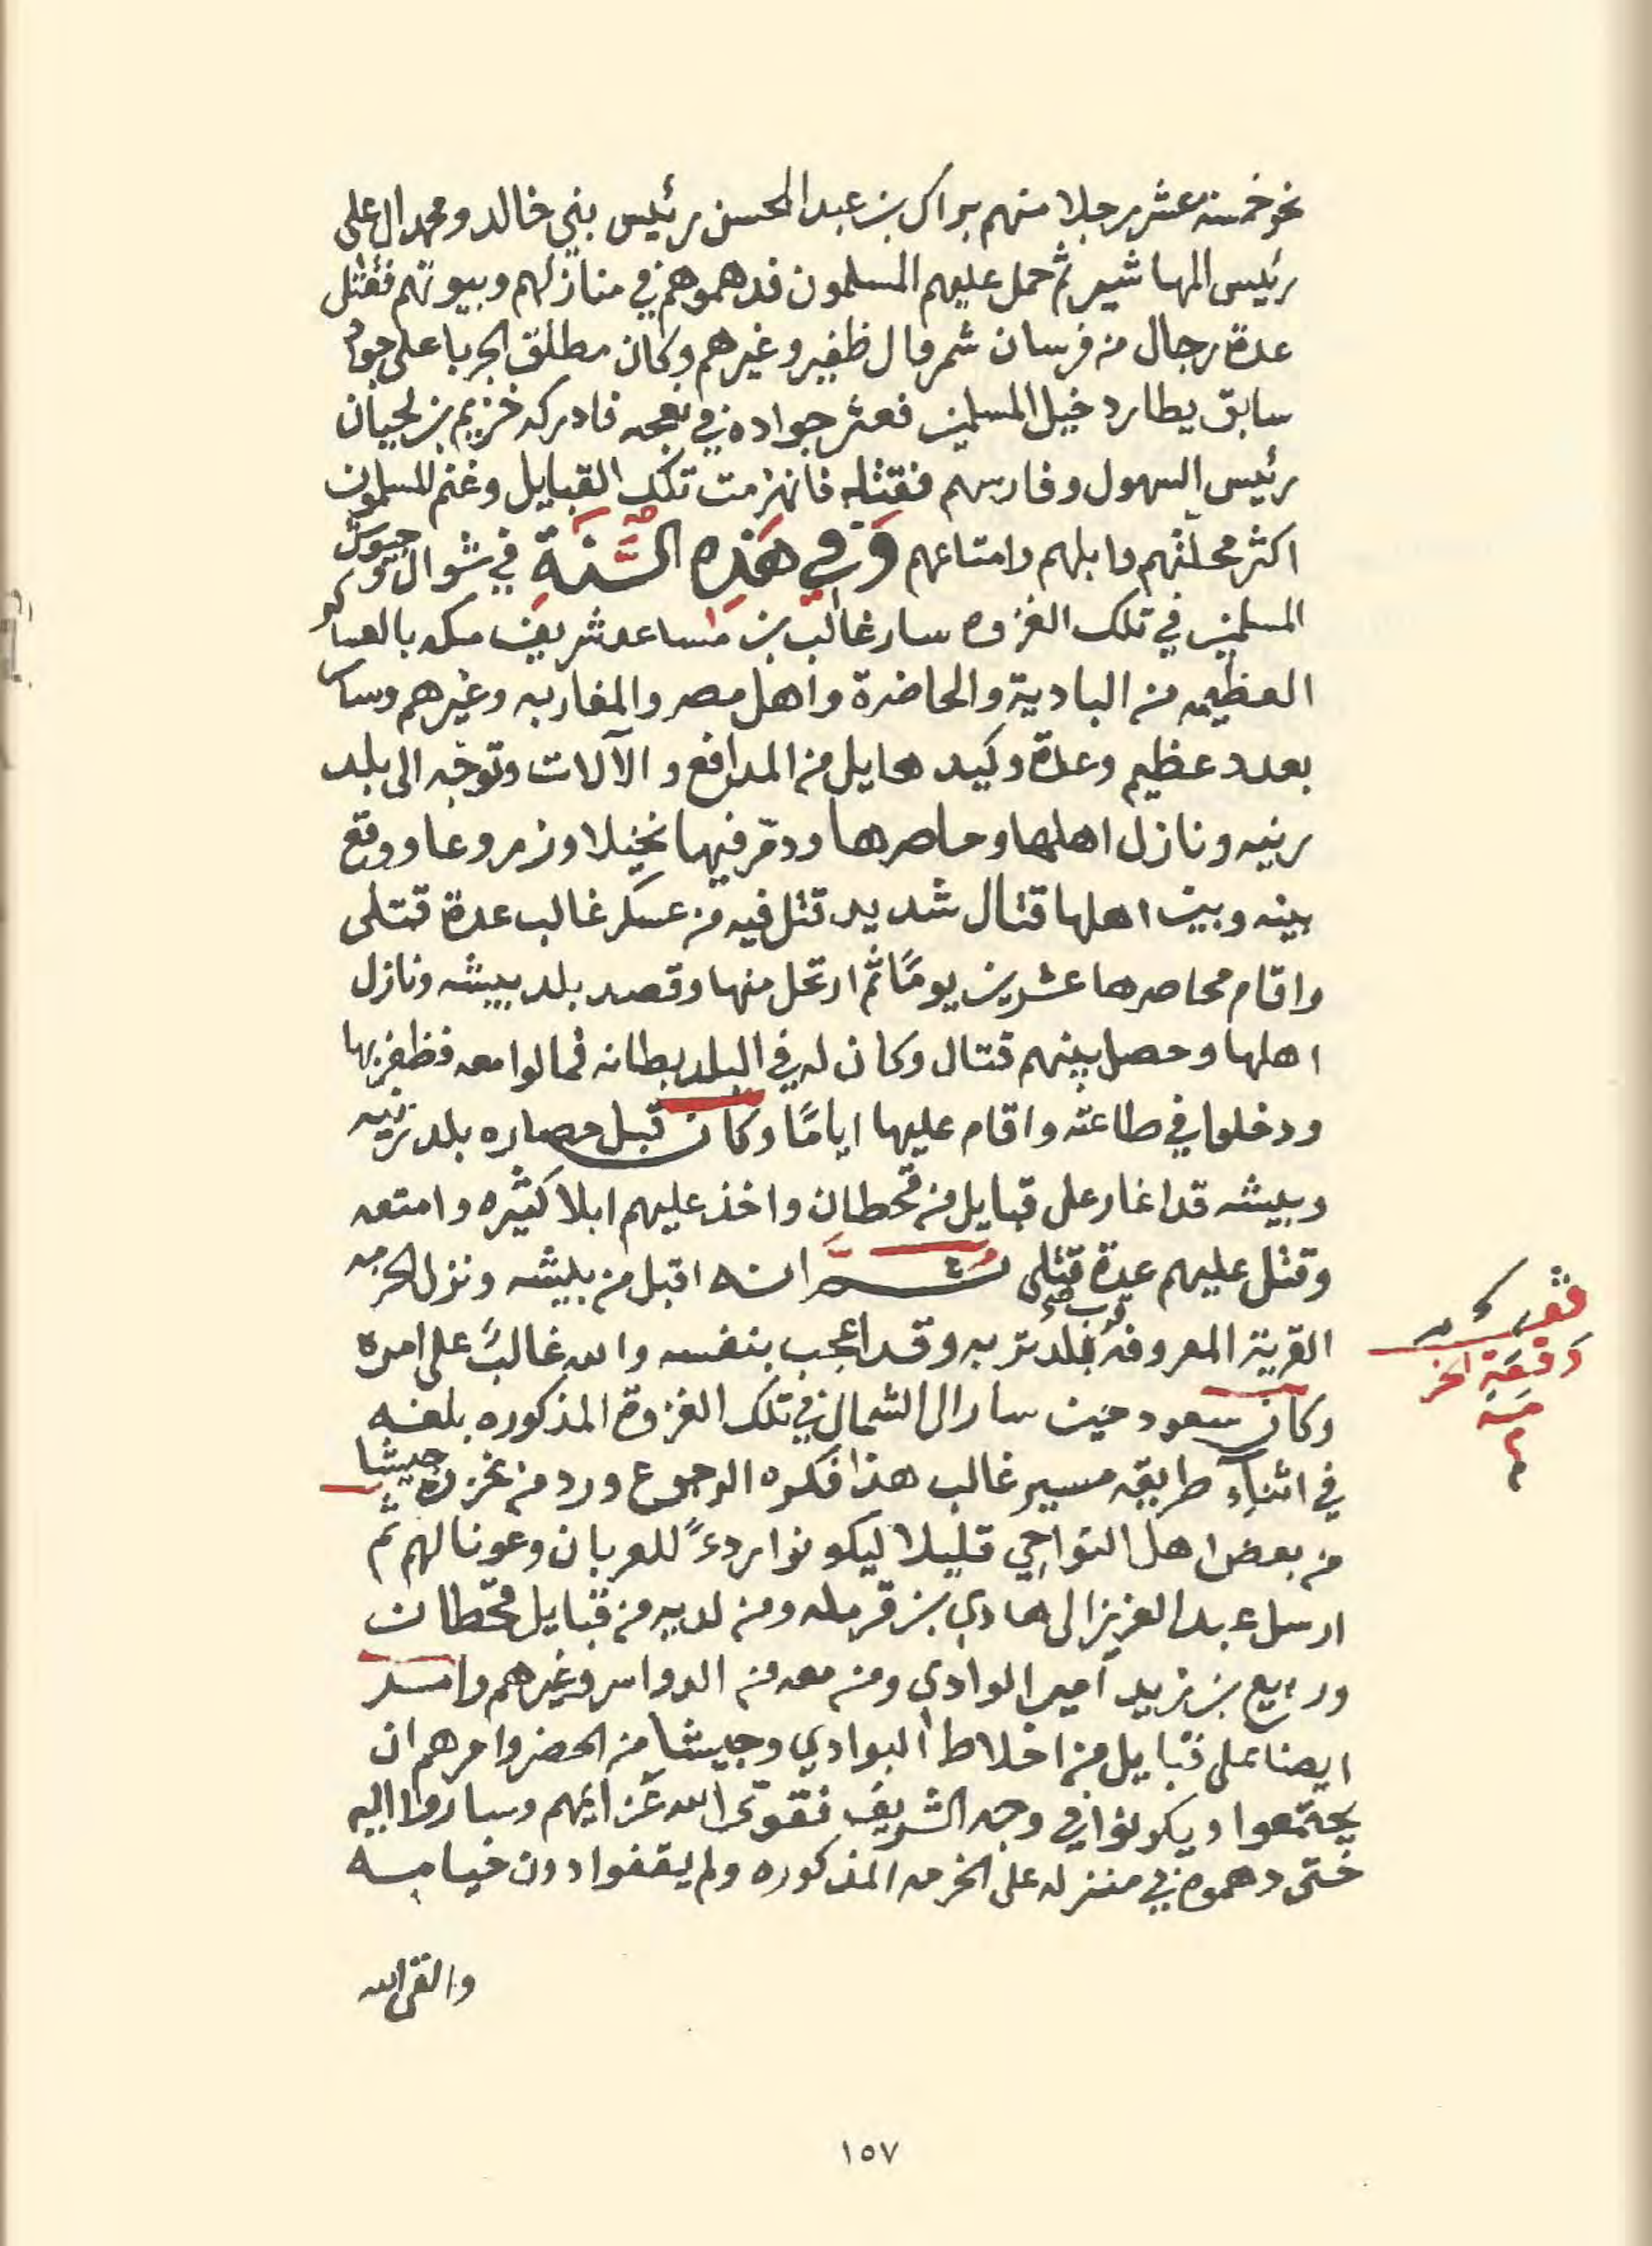 نحو خمسة عشر رجلا منهم براك بن عبد المحسن رئيس بني خالد ومحمد ال علي
رئيس المهاشير ثم حمل عليهم المسلمون فدهموهم في منازلهم وبيوتهم فقتل
عدة رجال من فرسان شمر وال ظفير وغيرهم وكان مطلق الجربا على جواد
سابق يطارد خيل المسلمين فعثر جواده في نعجه فادركه خزيم بن لحيان
رئيس السهول وفارسهم فقتله فانهزمت تلك القبايل وغنم المسلمون
اكثر محلتهم وابلهم وامتاعهم وَفِي هَذِهِ السَّنَةِ في شوال وجيوش
المسلمين في تلك الغزوه سار غالب بن مساعد شريف مكه بالعساكر
العظيمه من البادية والحاضرة واهل مصر والمغاربه وغيرهم وسار
بعدد عظيم وعدة وكيد هايل من المدافع والآلات وتوجه الى بلد
رنيه ونازل اهلها وحاصرها ودمر فيها نخيلا وزروعا ووقع
بينه وبين اهلها قتال شديد قتل فيه من عسكر غالب عدة قتلى
واقام محاصرها عشرين يومًا ثم ارتحل منها وقصد بلد بيشه ونازل
اهلها وحصل بينهم قتال وكان له في البلد بطانه فمالوا معه فظفر بها
ودخلوا في طاعته واقام عليها ايامًا وكان قبل حصاره بلد رنيه
وبيشه قد اغار على قبايل من قحطان واخذ عليهم ابلا كثيره وامتعه
وقتل عليهم عدة قتلى ثُمَّ انه اقبل من بيشه ونزل الخرمه
القرية المعروفه قرب بلد تربه وقد اعجب بنفسه والله غالبٌ على امره
وكان سعود حين سار الى الشمال في تلك الغزوة المذكوره بلغه
في اثناء طريقه مسير غالب هذا فكره الرجوع ورد من غزوه جيشا
من بعض اهل النواحي قليلا ليكونوا ردءً للعربان وعونا لهم ثم
ارسل عبد العزيز الى هادي بن قرمله ومن لديه من قبايل قحطان
وربيع بن زيد امير الوادي ومن معه من الدواسر وغيرهم وامر
ايضا على قبايل من اخلاط البوادي وجيشا من الحضر وامرهم ان
يجتمعوا ويكونوا في وجه الشريف فقوى الله عزايمهم وساروا اليه
حتى دهموه في منزله على الخرمه المذكوره ولم يقفوا دون خيامه
والقى الله
وقعة الخر
مه
١٥٧